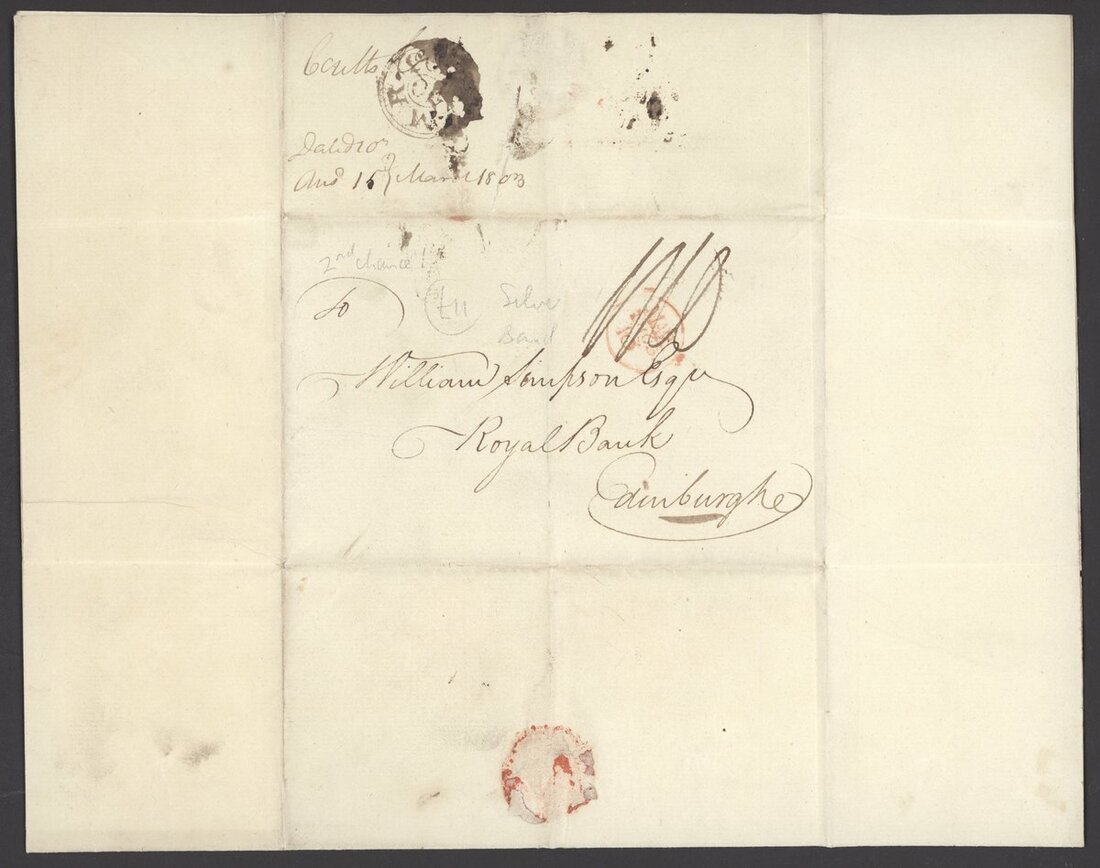 Coutts
Dated 10
Ansd 15 March 1803
2nd chance
To
£11
Silve
Band
William Simpson Esqr
Royal Bank
Edinburghe